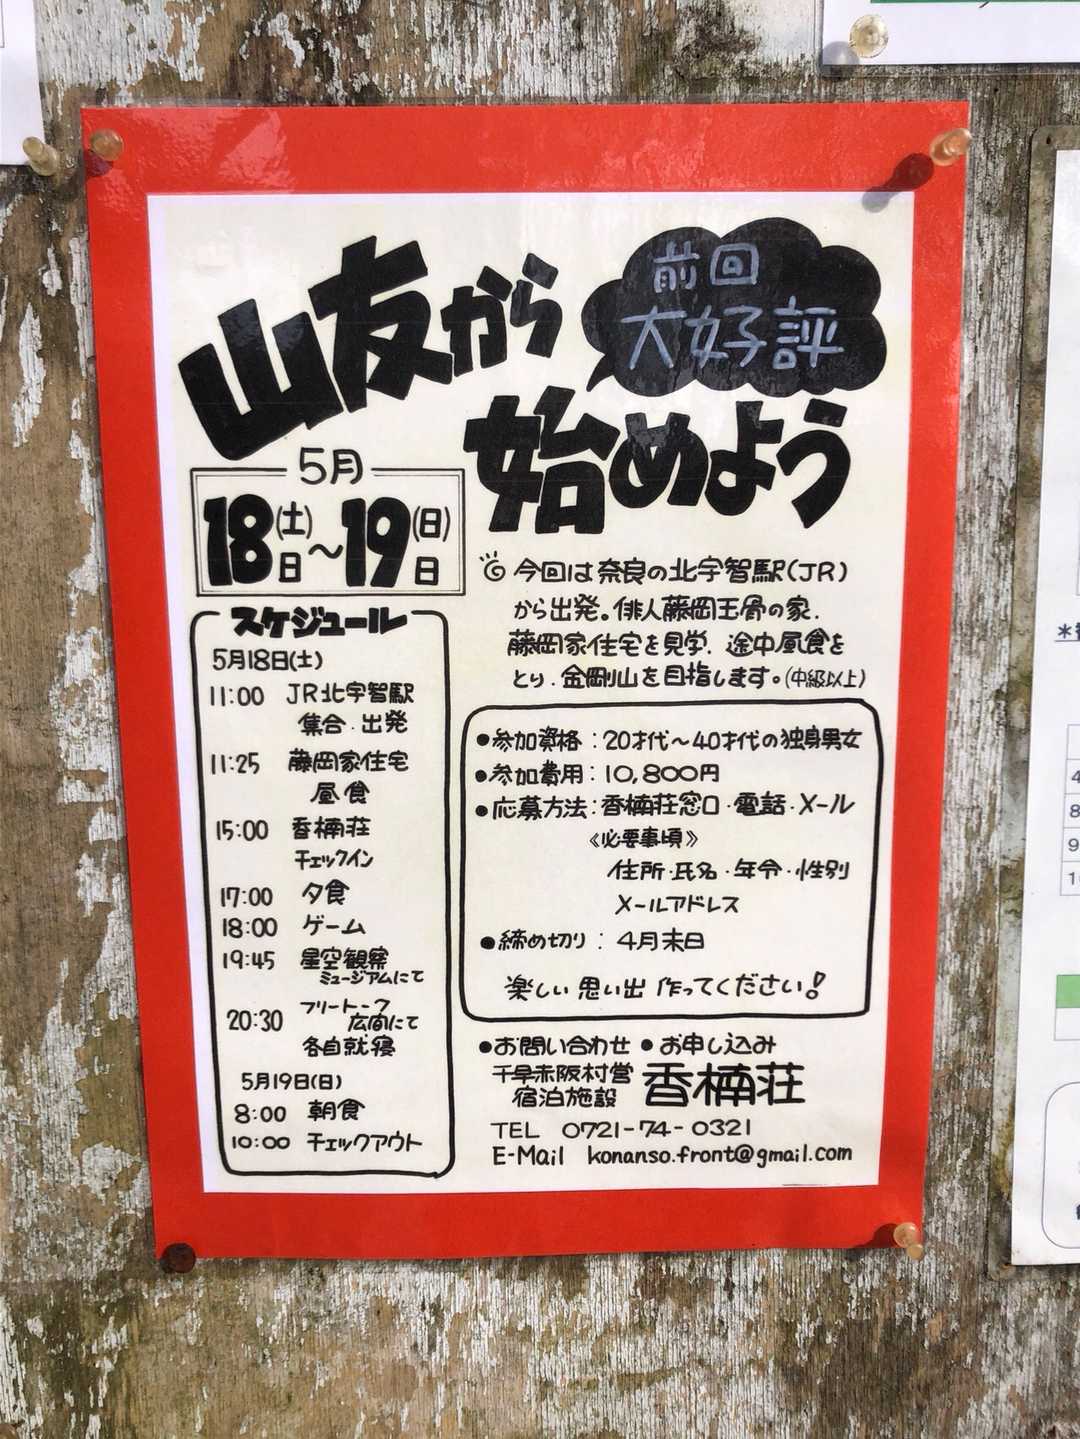 山友から
前回
大好評
始めよう
5月
18日(土)～19日(日)
今回は奈良の北宇智駅(JR)
から出発。俳人藤岡玉骨の家.
藤岡家住宅を見学. 途中昼食を
とり.金剛山を目指します。(中級以上)
スケジュール
5月18日(土)
11:00 JR北宇智駅
集合・出発
11:25 藤岡家住宅
昼食
15:00 香楠荘
チェックイン
17:00 夕食
18:00 ゲーム
19:45 星空観察
ミュージアムにて
20:30 フリートーク
広間にて
各自就寝
5月19日(日)
8:00 朝食
10:00 チェックアウト
●参加資格:20才代～40才代の独身男女
●参加費用:10,800円
●応募方法:香楠荘窓口・電話・メール
《必要事項》
住所・氏名・年令・性別
メールアドレス
●締め切り:4月末日
楽しい思い出作ってください!
●お問い合わせ●お申し込み
千早赤阪村営
宿泊施設
香楠荘
TEL 0721-74-0321
E-Mail konanso.front@gmail.com